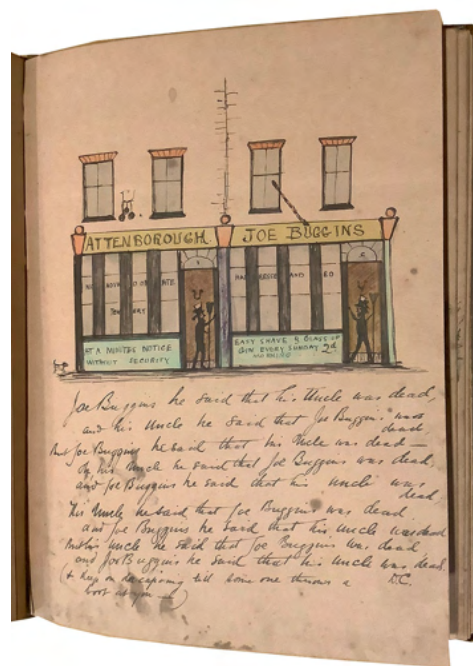 ATTENBOROUGH. JOE BUGGINS
AT A MINUTES NOTICE
WITHOUT SECURITY
EASY SHAVE & GLASS OF
GIN EVERY SUNDAY 2d
MORNING
Joe Buggins he said that his Uncle was dead,
and his Uncle he said that Joe Buggins was
dead,
But Joe Buggins he said that his Uncle was dead —
his Uncle he said that Joe Buggins was dead,
and Joe Buggins he said that his Uncle was
dead
His Uncle he said that Joe Buggins was dead
and Joe Buggins he said that his Uncle was dead
But his Uncle he said that Joe Buggins was dead
and Joe Buggins he said that his Uncle was dead.
(& keep on till some one throws a
boot at you —)